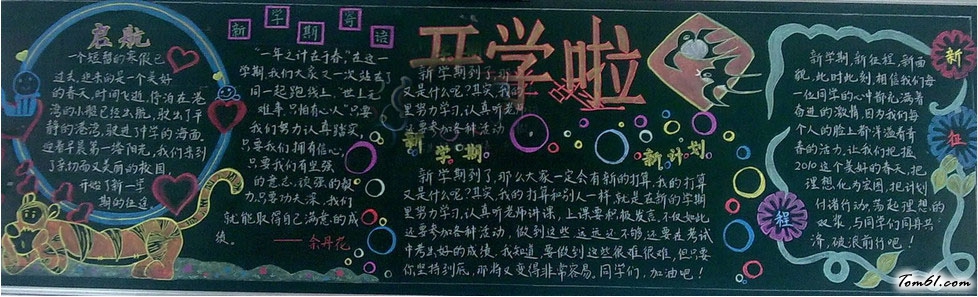 启航
一个短暂的寒假已
过去,迎来的是一个美好
的春天,时间飞逝,停泊在港
湾的小船已经出航,驶出了平
静的港湾,驶进了中学的海面,
迎着早晨第一缕阳光,我们来到
了亲切而又美丽的校园,
开始了新一年
期的征途
新学期寄语
“一年之计在于春”,在这一
学期,我们大家又一次站在了
同一起跑线上,“世上无
难事,只怕有心人”只要
我们努力认真踏实,
只要我们拥有信心,
只要我们有坚强
的意志,顽强的毅
力,只要功夫深,我们
就能取得自己满意的成
绩。
——余丹花
开学啦
新学期到了,那
又是什么呢?其实,我的
里努力学习,认真听老师
要参加各种活动
新学期
新计划
新学期到了,那么大家一定会有新的打算,我的打算
又是什么呢?其实,我的打算和别人一样,就是在新的学期
里努力学习,认真听老师讲课,上课要积极发言,不仅如此
还要参加各种活动,做到这些远远还不够还要在考试
中考出好的成绩,我知道,要做到这些很难很难,但只要
你坚持到底,那将又变得非常容易,同学们,加油吧!
新征程
新学期,新征程,新面
貌,此时此刻,相信我们每
一位同学的心中都充满着
奋进的激情,因为我们每
个人的脸上都洋溢着青
春的活力,让我们把握
2010这个美好的春天,把
理想化为宏图,把计划
付诸行动,荡起理想的
双桨,与同学们同舟共
济,破浪前行吧!
Tom61.com